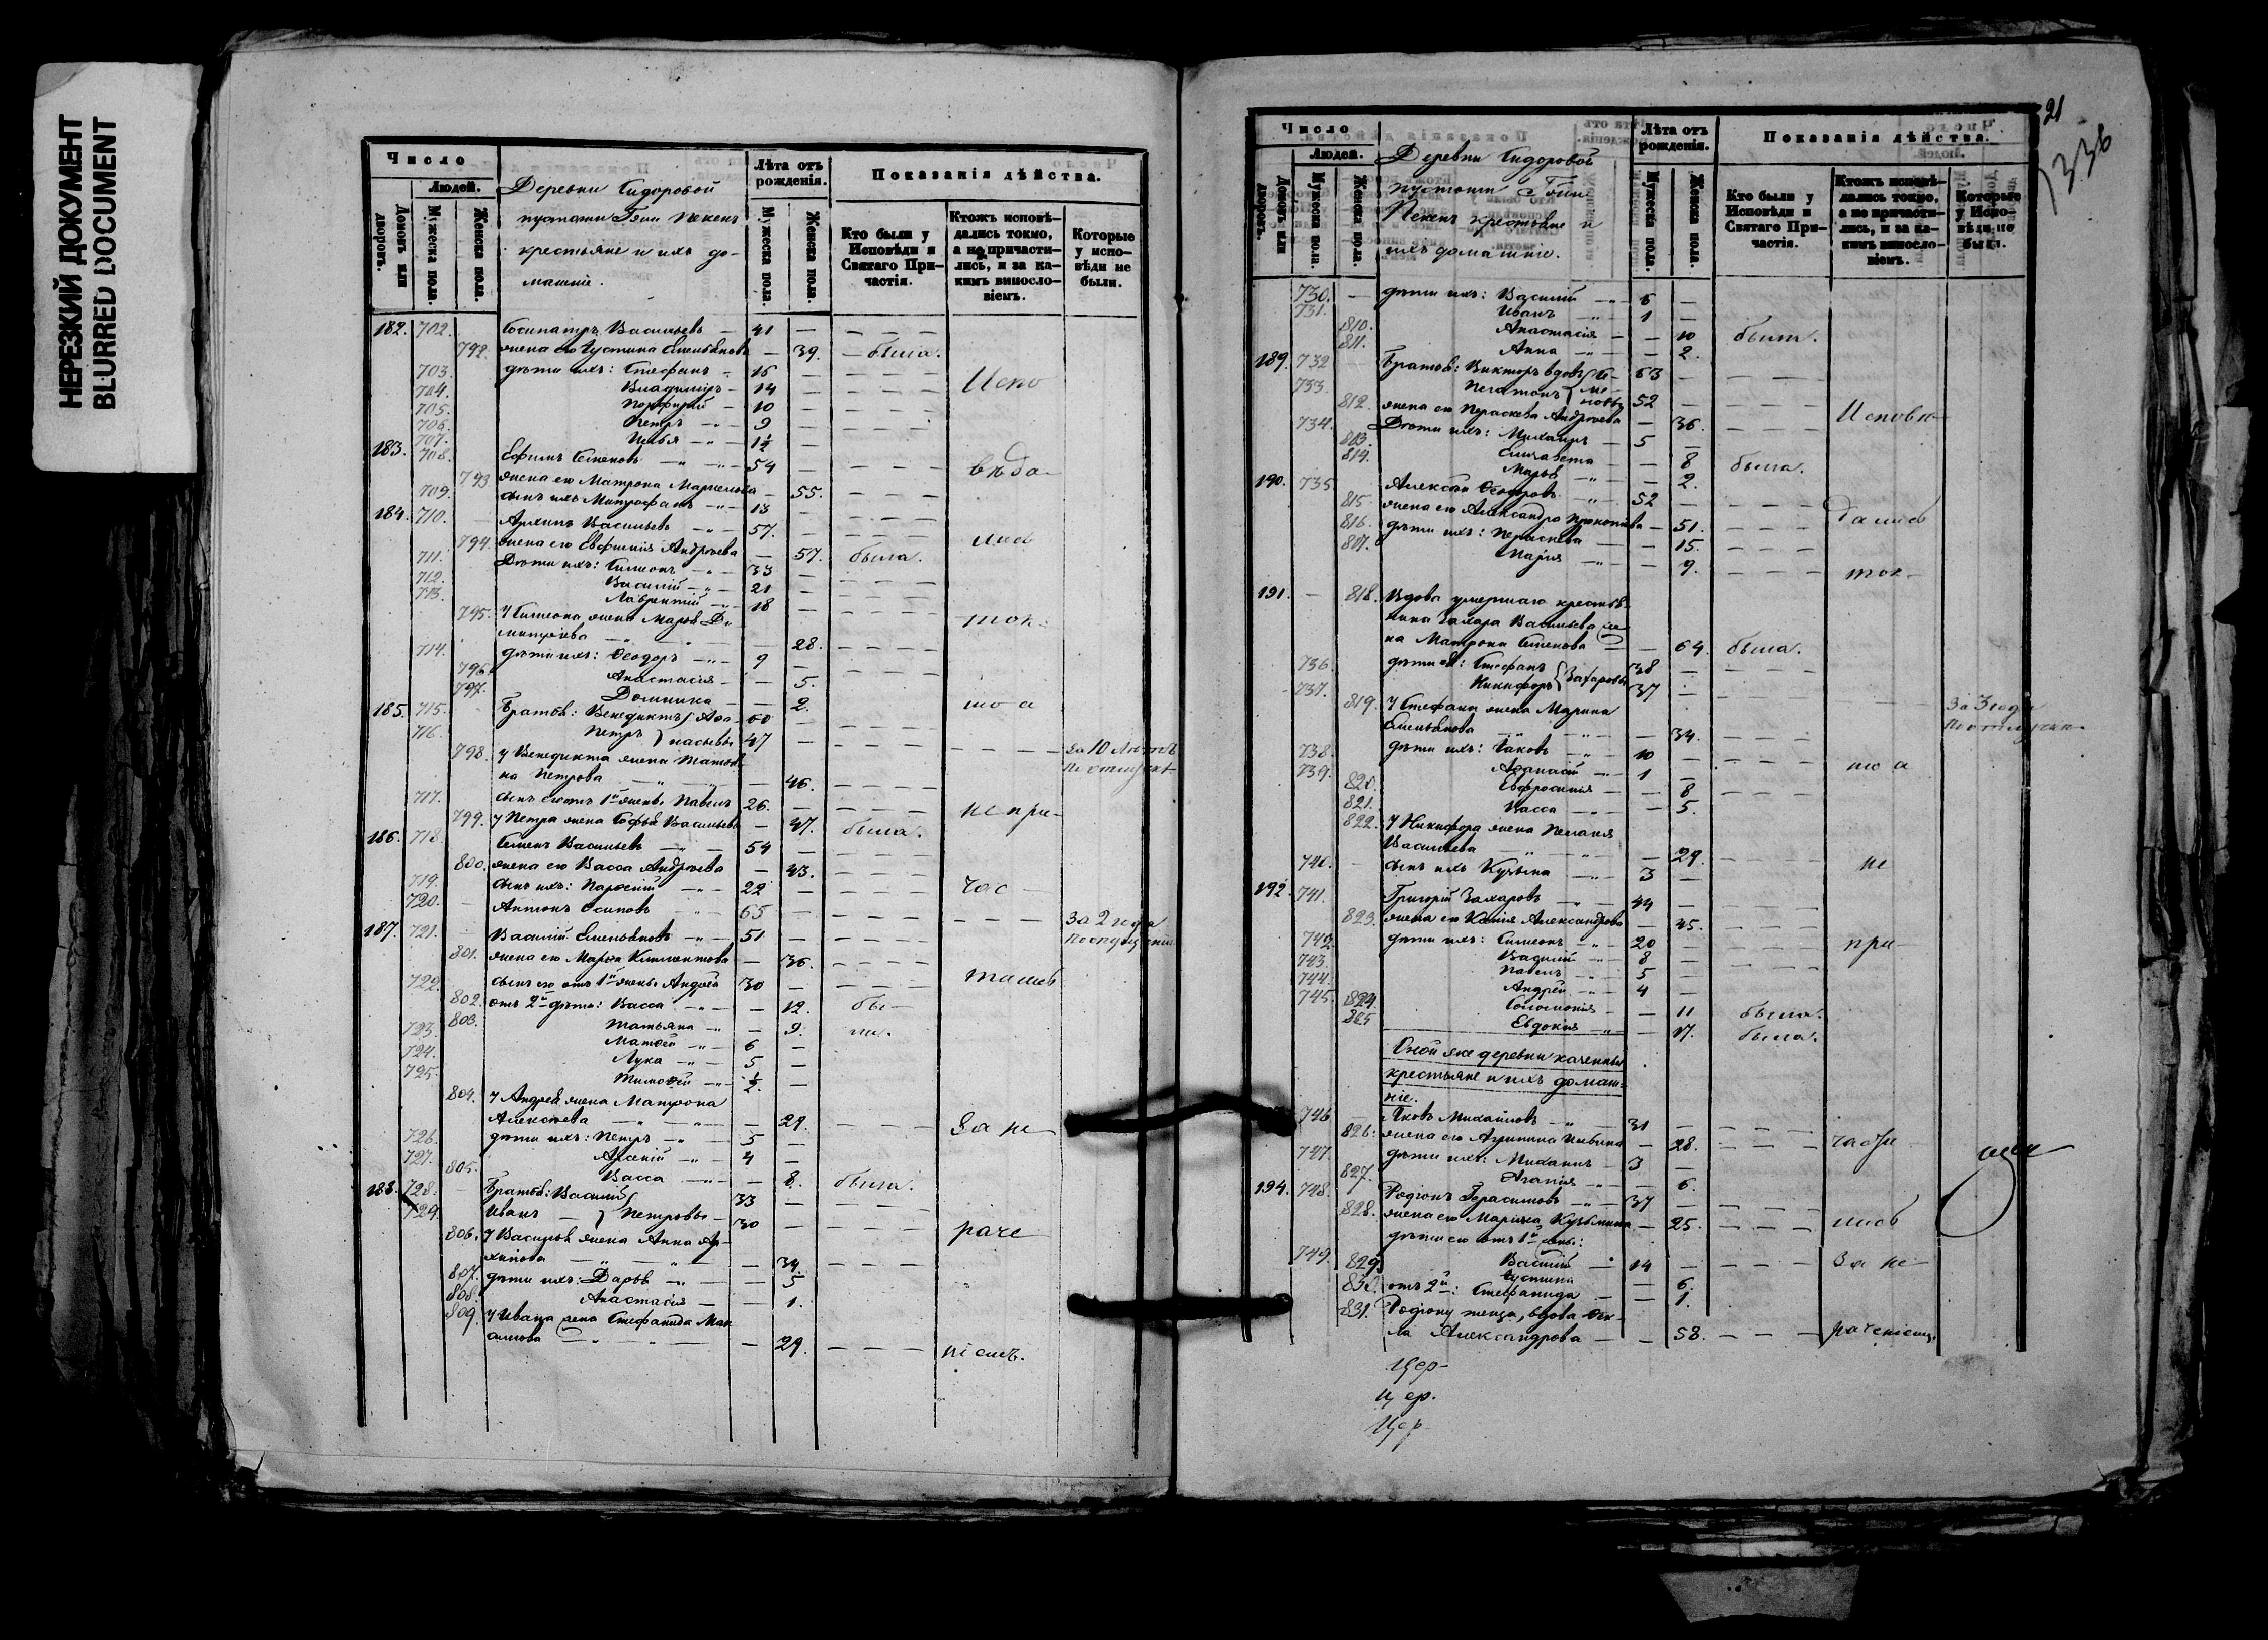 НЕРЕЗКИЙ ДОКУМЕНТ
BLURRED DOCUMENT
Число
Людей.
Домовъ или дворовъ.
Мужеска пола.
Женска пола.
Деревни Сидоровой
пустоши Гяни Пекенъ
крестьяне и ихъ до-
машніе.
Лѣта отъ рожденія.
Мужеска пола.
Женска пола.
Показанія дѣйства.
Кто были у Исповѣди и Святаго Причастія.
Ктожъ исповѣдались токмо, а не причастились, и за какимъ винословіемъ.
Которые у исповѣди не были.
182. 702. Сосипатръ Васильевъ — 41 —
792. жена его Іустина Емельянова — 39. — была.
703. дѣти ихъ: Стефанъ — 16 — Испо
704. Владиміръ — 14 —
705. Порфирій — 10 —
706. Петръ — 9 —
707. Илья — 1½ —
183. 708. Ефимъ Семеновъ — 54 — вѣда-
793. жена его Матрона Маркелова — 55.
709. сынъ ихъ Митрофанъ — 13 —
184. 710. Архипъ Васильевъ — 57. — лись
794. жена его Евфимія Андреева — 57. была.
711. Дѣти ихъ: Симеонъ — 33 —
712. Василій — 21 —
713. Лаврентій — 18 —
795. У Симеона жена Марья Ди- ток-
митріева — 28.
714. дѣти ихъ: Ѳеодоръ — 9 —
796. Анастасія — 5.
797. Домника — 2.
185. 715. Братья: Венедиктъ Афа- 60 — мо а
716. Петръ насьевы 47 —
798. у Венедикта жена Татья- за 10 лѣтъ
на Петрова — 46. По отлучк-
717. сынъ его отъ 1й жены Павелъ 26. — не при-
799. у Петра жена Софья Васильева — 47. была.
186. 718. Семенъ Васильевъ — 54 —
800. жена его Васса Андреева — 43.
719. сынъ ихъ: Парѳеній — 22 — час-
720. Антонъ Осиповъ — 65 — За 2 года
187. 721. Василій Емельяновъ — 51 — По опущенію
801. жена его Марья Климентова — 36.
722. сынъ его отъ 1й жены Андрей 30 — тились
802. отъ 2й дѣти: Васса — 12. бы-
803. Татьяна — 9. ли.
723. Матѳей — 6 —
724. Лука — 5 —
725. Тимоѳей — ½ —
804. У Андрея жена Матрона
Алексѣева — 29. За не
726. дѣти ихъ: Петръ — 5 —
727. Арсеній — 4 —
805. Васса — 8. была.
188. 728. Братья: Василій 33 —
729. Иванъ — Петровы — 30 —
806. У Василья жена Анна Ар- раче
хипова — 34.
807. дѣти ихъ: Дарья — 5
808. Анастасія — 1.
809. У Ивана жена Стефанида Мак-
симова — 29. ніемъ.
21
1336
Число
Людей.
Домовъ или дворовъ.
Мужеска пола.
Женска пола.
Деревни Сидоровой
пустоши Гяни
Пекенъ крестьяне и
ихъ домашніе.
Лѣта отъ рожденія.
Мужеска пола.
Женска пола.
Показанія дѣйства.
Кто были у Исповѣди и Святаго Причастія.
Ктожъ исповѣдались токмо, а не причастились, и за какимъ винословіемъ.
Которые у Исповѣди не были.
730. — дѣти ихъ: Василій — 6 —
731. Иванъ — 1 —
810. Анастасія — 10 были.
811. Анна — 2.
189. 732 Братья: Викторъ вдовъ Се- 63 —
733. Платонъ ме- новы 52 —
812. жена его Параскева Андреева — 36. Исповѣ-
734. Дѣти ихъ: Михаилъ — 5 —
813. Елизавета — 8 была.
814. Марья — 2.
190. 735. Алексѣй Ѳеодоровъ — 52 —
815. жена его Александра Прокопьева — 51. дались
816. дѣти ихъ: Параскева — 15.
817. Марія — 9. ток-
191. — 818. Вдова умершаго крестья-
нина Захара Васильева же-
на Матрона Семенова — 64. была.
736. дѣти ея: Стефанъ 38 —
737. Никифоръ Захаровы 37 —
819. У Стефана жена Марина За 3 года
Емельянова — 34. По отлучкѣ
738. дѣти ихъ: Іаковъ — 10 — мо а
739. Аѳанасій — 1 —
820. Евфросинія — 8
821. Васса — 5.
822. У Никифора жена Пелагія
Васильева — 29.
740. сынъ ихъ Кузьма — 3 — не
192. 741. Григорій Захаровъ — 44 —
823. жена его Ксенія Александрова — 45.
742. дѣти ихъ: Симеонъ — 20 — при
743. Василій — 8 —
744. Павелъ — 5 —
745. Андрей — 4 —
824. Соломонія — 11 была.
825 Евдокія — 17. была.
Оной же деревни казенные
крестьяне и ихъ домаш-
ніе.
746 — Яковъ Михайловъ — 31 —
826. жена его Агрипина Ильина — 28. части
747. дѣти ихъ: Михаилъ — 3 —
827. Агапія — 6.
194. 748. Родіонъ Герасимовъ — 37 —
828. жена его Марина Кузьмина — 25. лись
дѣти его отъ 1й жены:
749. Василій — 14 — За не-
829. Іустина — 6.
830. отъ 2й: Стефанида — 1.
831. Родіону теща, вдова Ѳек-
ла Александрова — 58. раченіемъ
Цер-
цер.
Цер